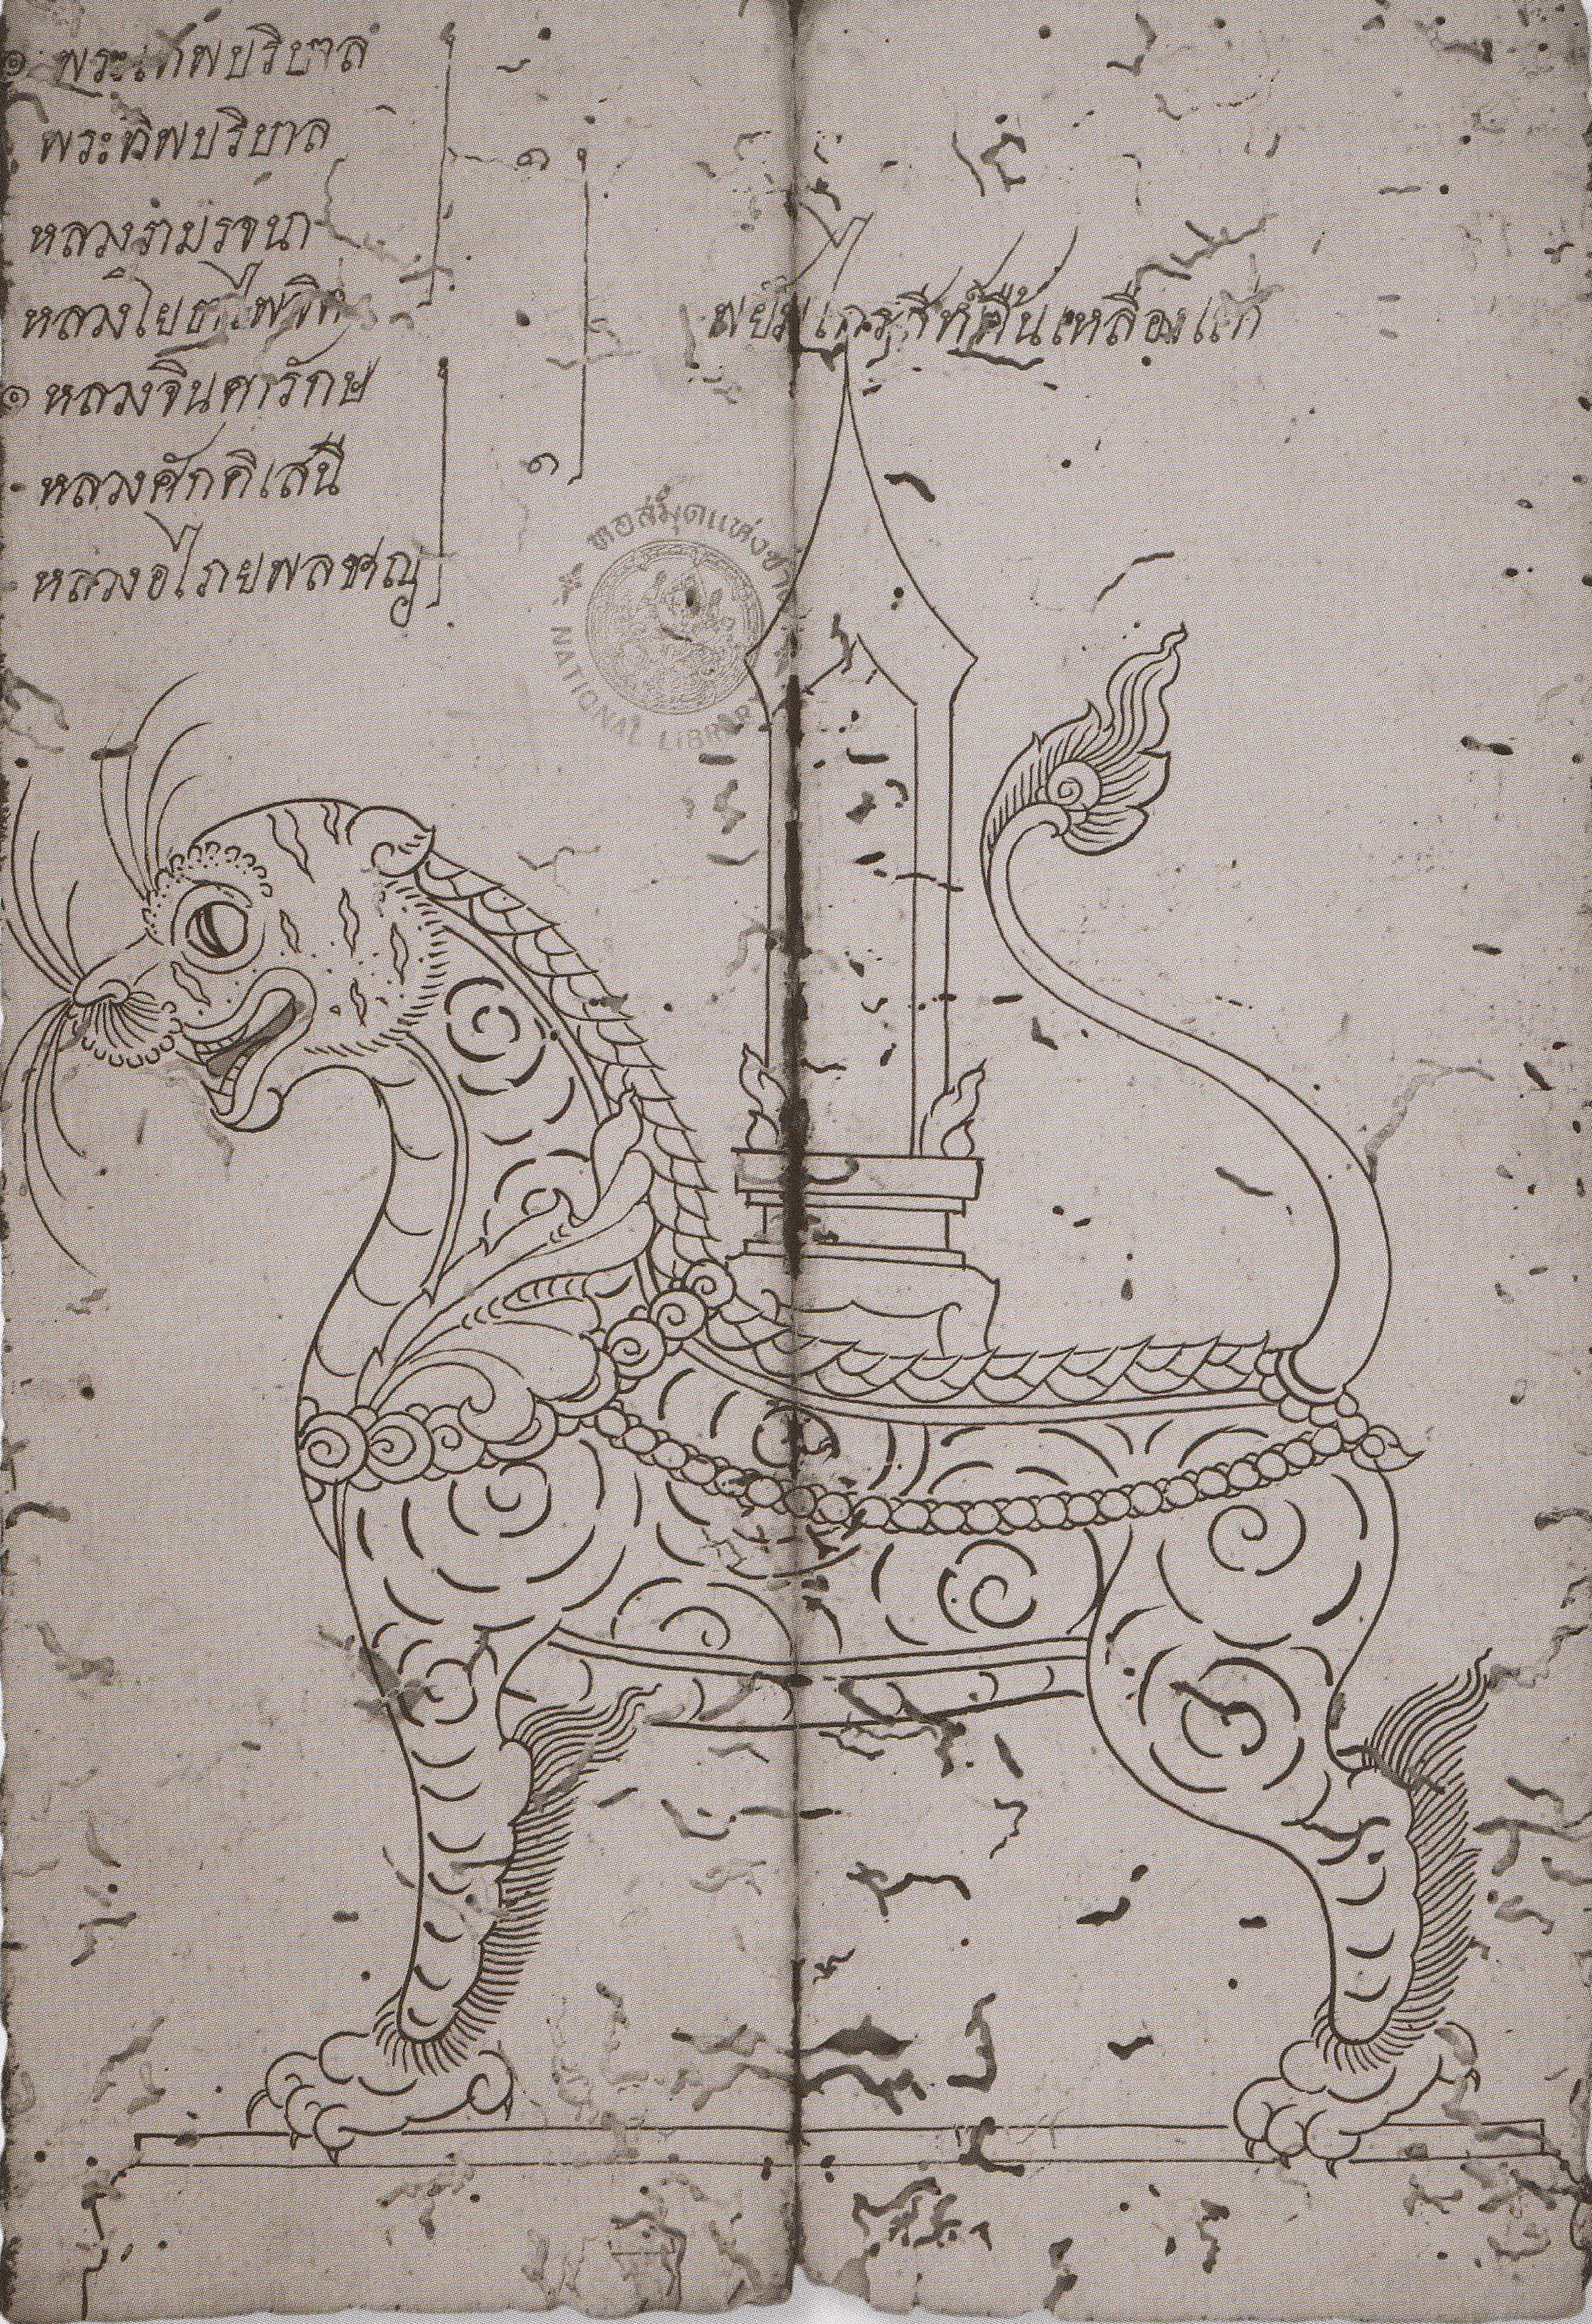 ๏ พระเทพบริบาล
พระพิพบริบาล
หลวงรามรจนา
หลวง
๏ หลวงจินดารักษ
หลวงศักดิเสนี
หลวงอไภยพลชาญ
๑
๑
พยัคฆไกรสีห์พื้นเหลืองแก่
หอสมุดแห่งชาติ
NATIONAL LIBRARY